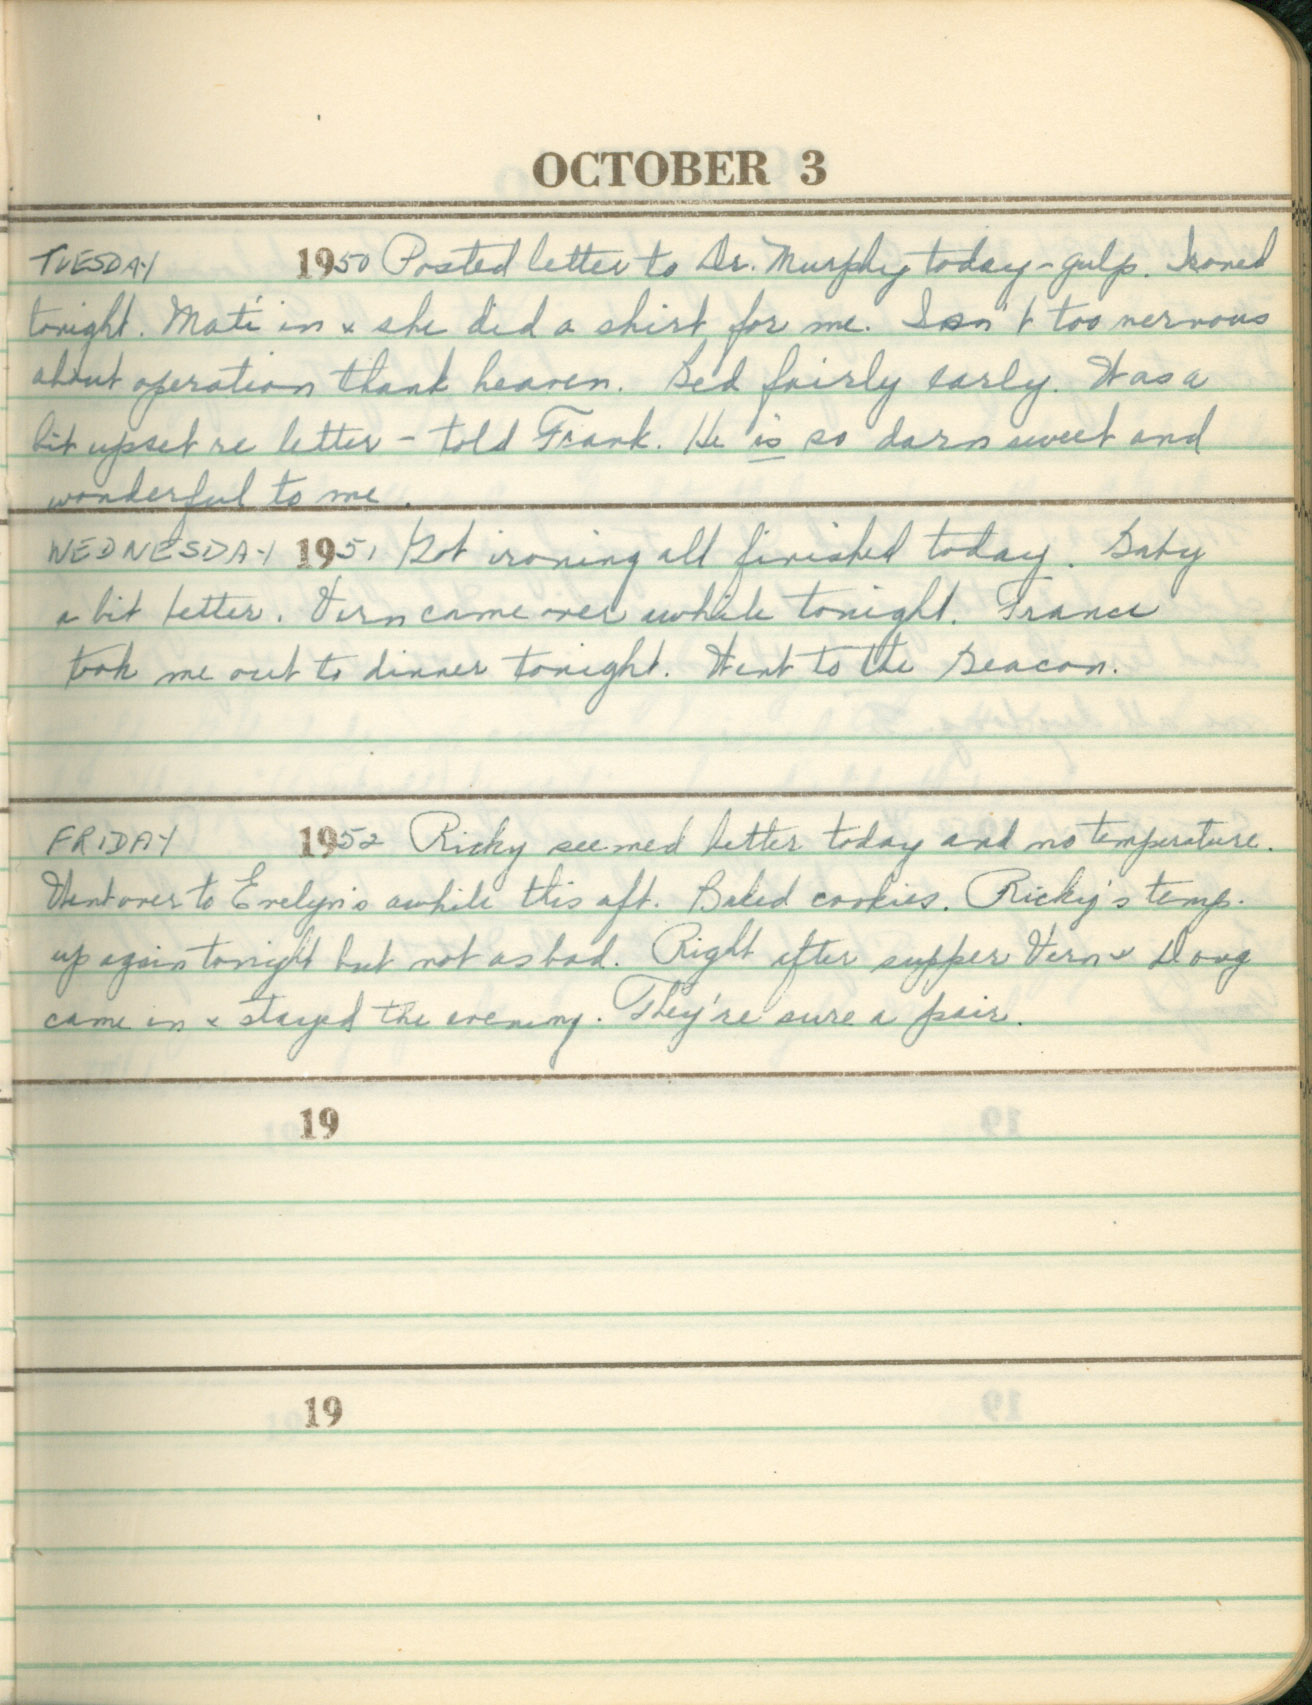 OCTOBER 3
TUESDAY 1950 Posted letter to Dr. Murphy today - gulp. Ironed
tonight. Maté in & she did a shirt for me. Isn't too nervous
about operation thank heaven. Bed fairly early. Was a
bit upset re letter - told Frank. He is so darn sweet and
wonderful to me.
WEDNESDAY 1951 Got ironing all finished today. Baby
a bit better. Vern came over awhile tonight. France
took me out to dinner tonight. Went to the Beacon.
FRIDAY 1952 Ricky seemed better today and no temperature.
Went over to Evelyn's awhile this aft. Baked cookies. Ricky's temp.
up again tonight but not as bad. Right after supper Vern & Doug
came in & stayed the evening. They're sure a pair.
19
19